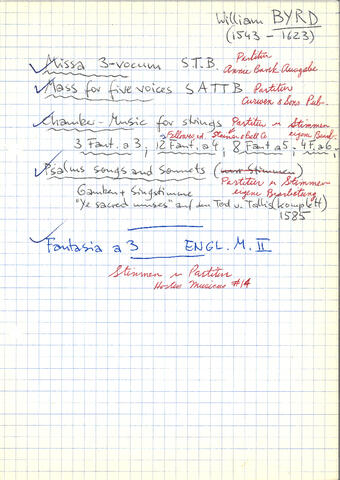 William BYRD
(1543 - 1623)
Missa 3-vocum S.T.B Partitur
Annie Bank Ausgabe
Mass for five voices SATTB Partitur
Curwen & Sons Pub.
Chamber-Music for strings Partitur u Stimmen
Fellowes ed. Stainer & Bell
3 Fant. a 3, 2 Fant. a 4, 8 Fant a 5, 4 F. a 6,
Psalms songs and sonnets (Stimmen)
Partitur u Stimmen
eigene Bearbeitung
Gamben + Singstimme
"Ye sacred muses" auf den Tod v. Tallis (komplett)
1585
Fantasia a 3 ENGL. M. II
Stimmen u Partitur
Hortus Musicus #14